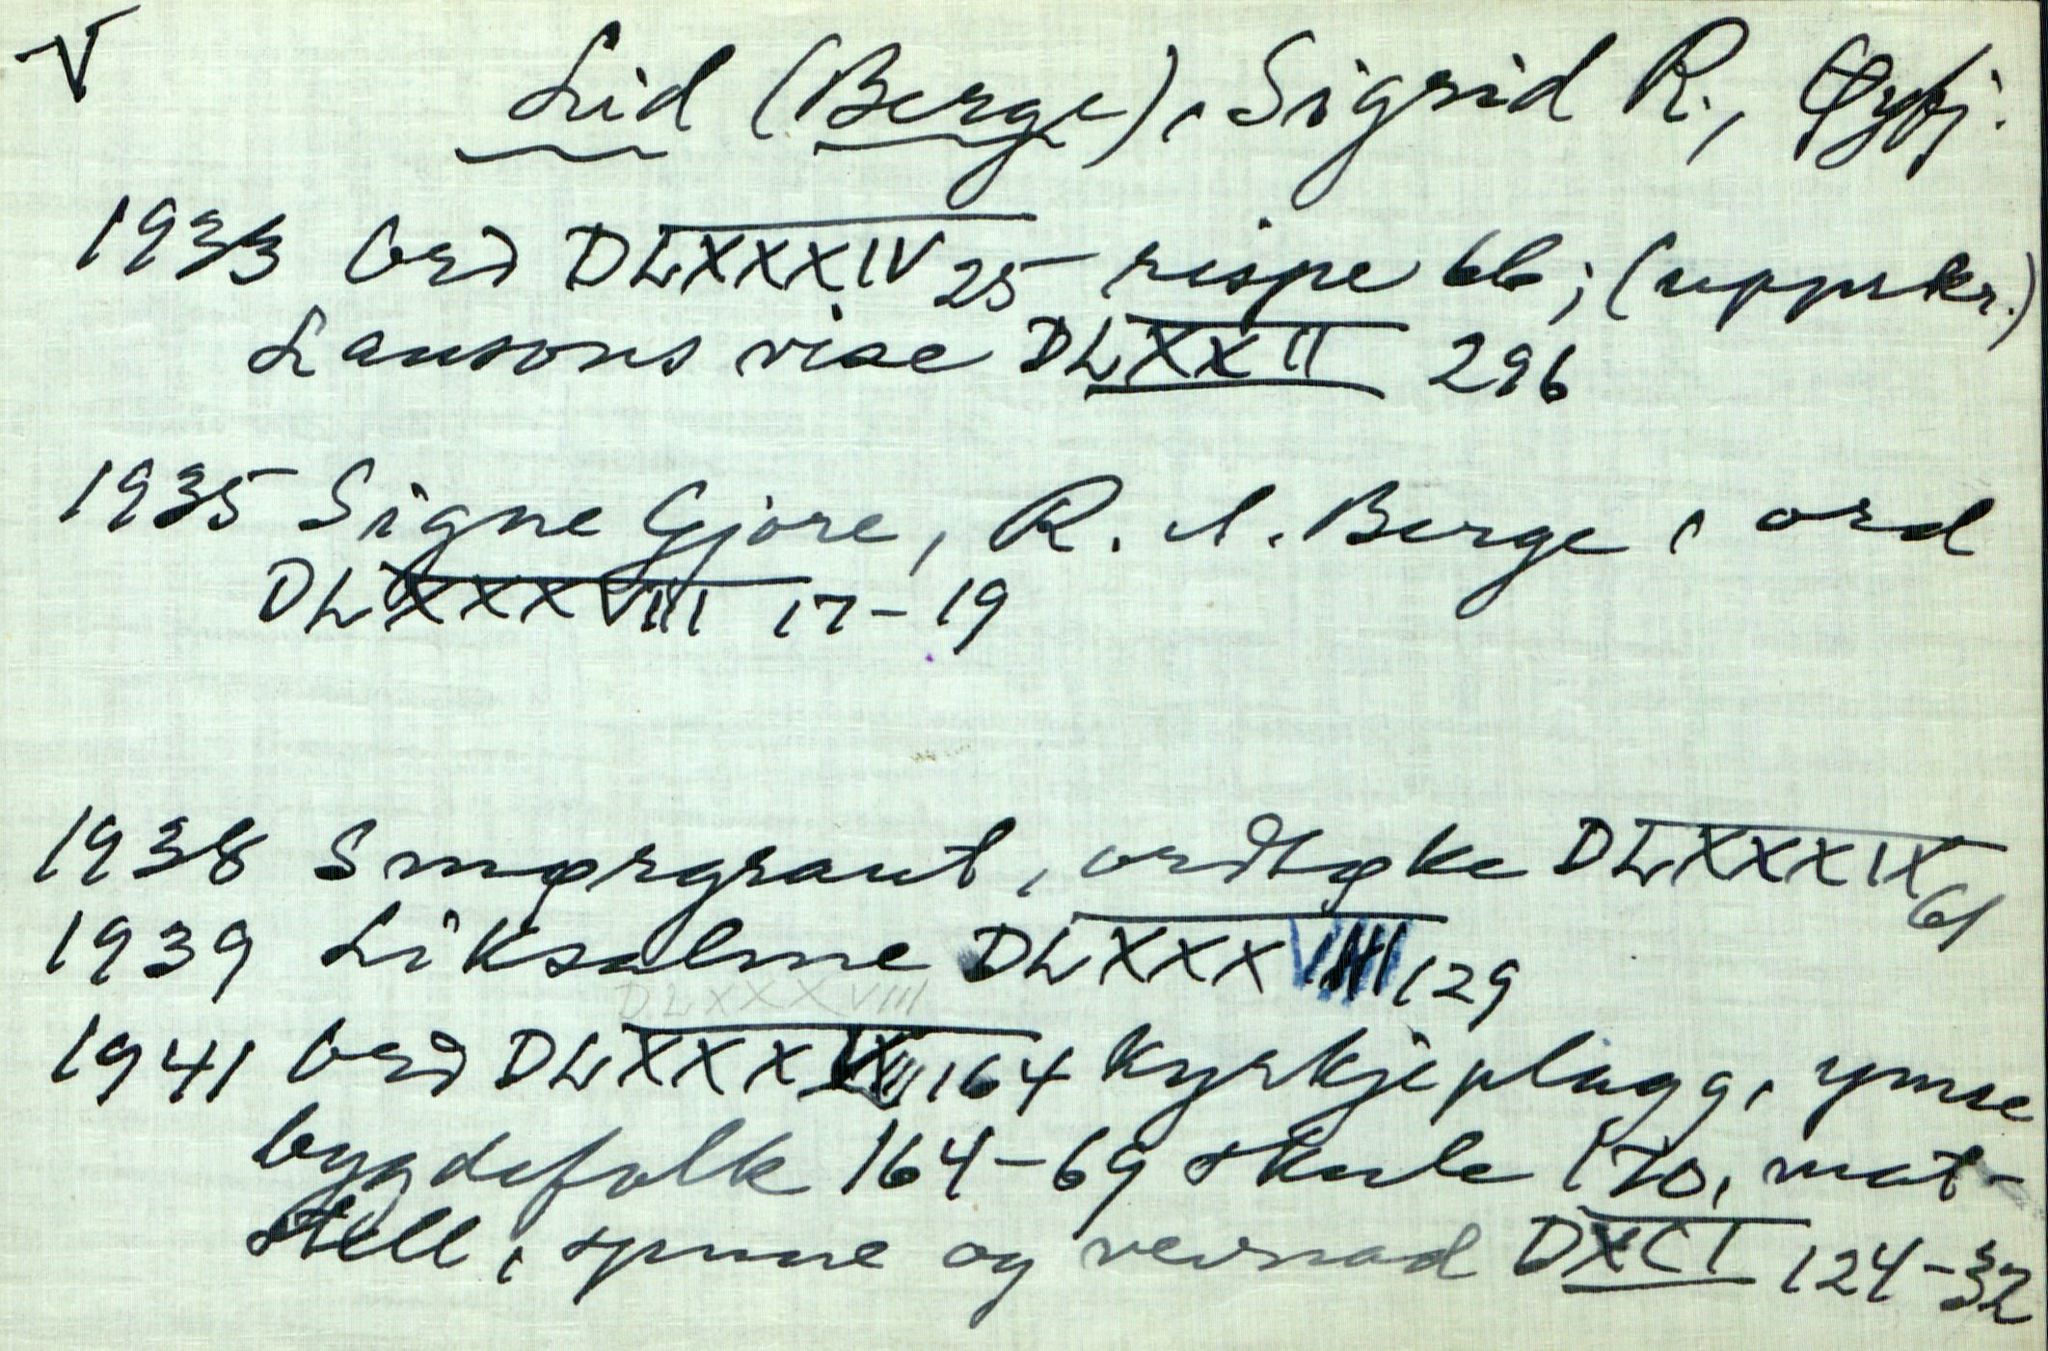 V
Lid (Berge), Sigrid R., Øyfj.
1933 Ord DLXXXIV 25 rispe 66; (uppskr.)
Lansons vise DLXXII 296
1935 Signe Gjøre, R. A. Berge, ord
DLXXXVIII 17-19
1938 Smørgraut, ordtøke DLXXXIX 61
1939 Liksalme DLXXXVIII 129
DLXXXVIII
1941 Ord DLXXX 164 Kyrkjeplagg, ymse
bygdefolk 164-69 skule 170, mat-
stell, spune og vevnad DXCI 124-32